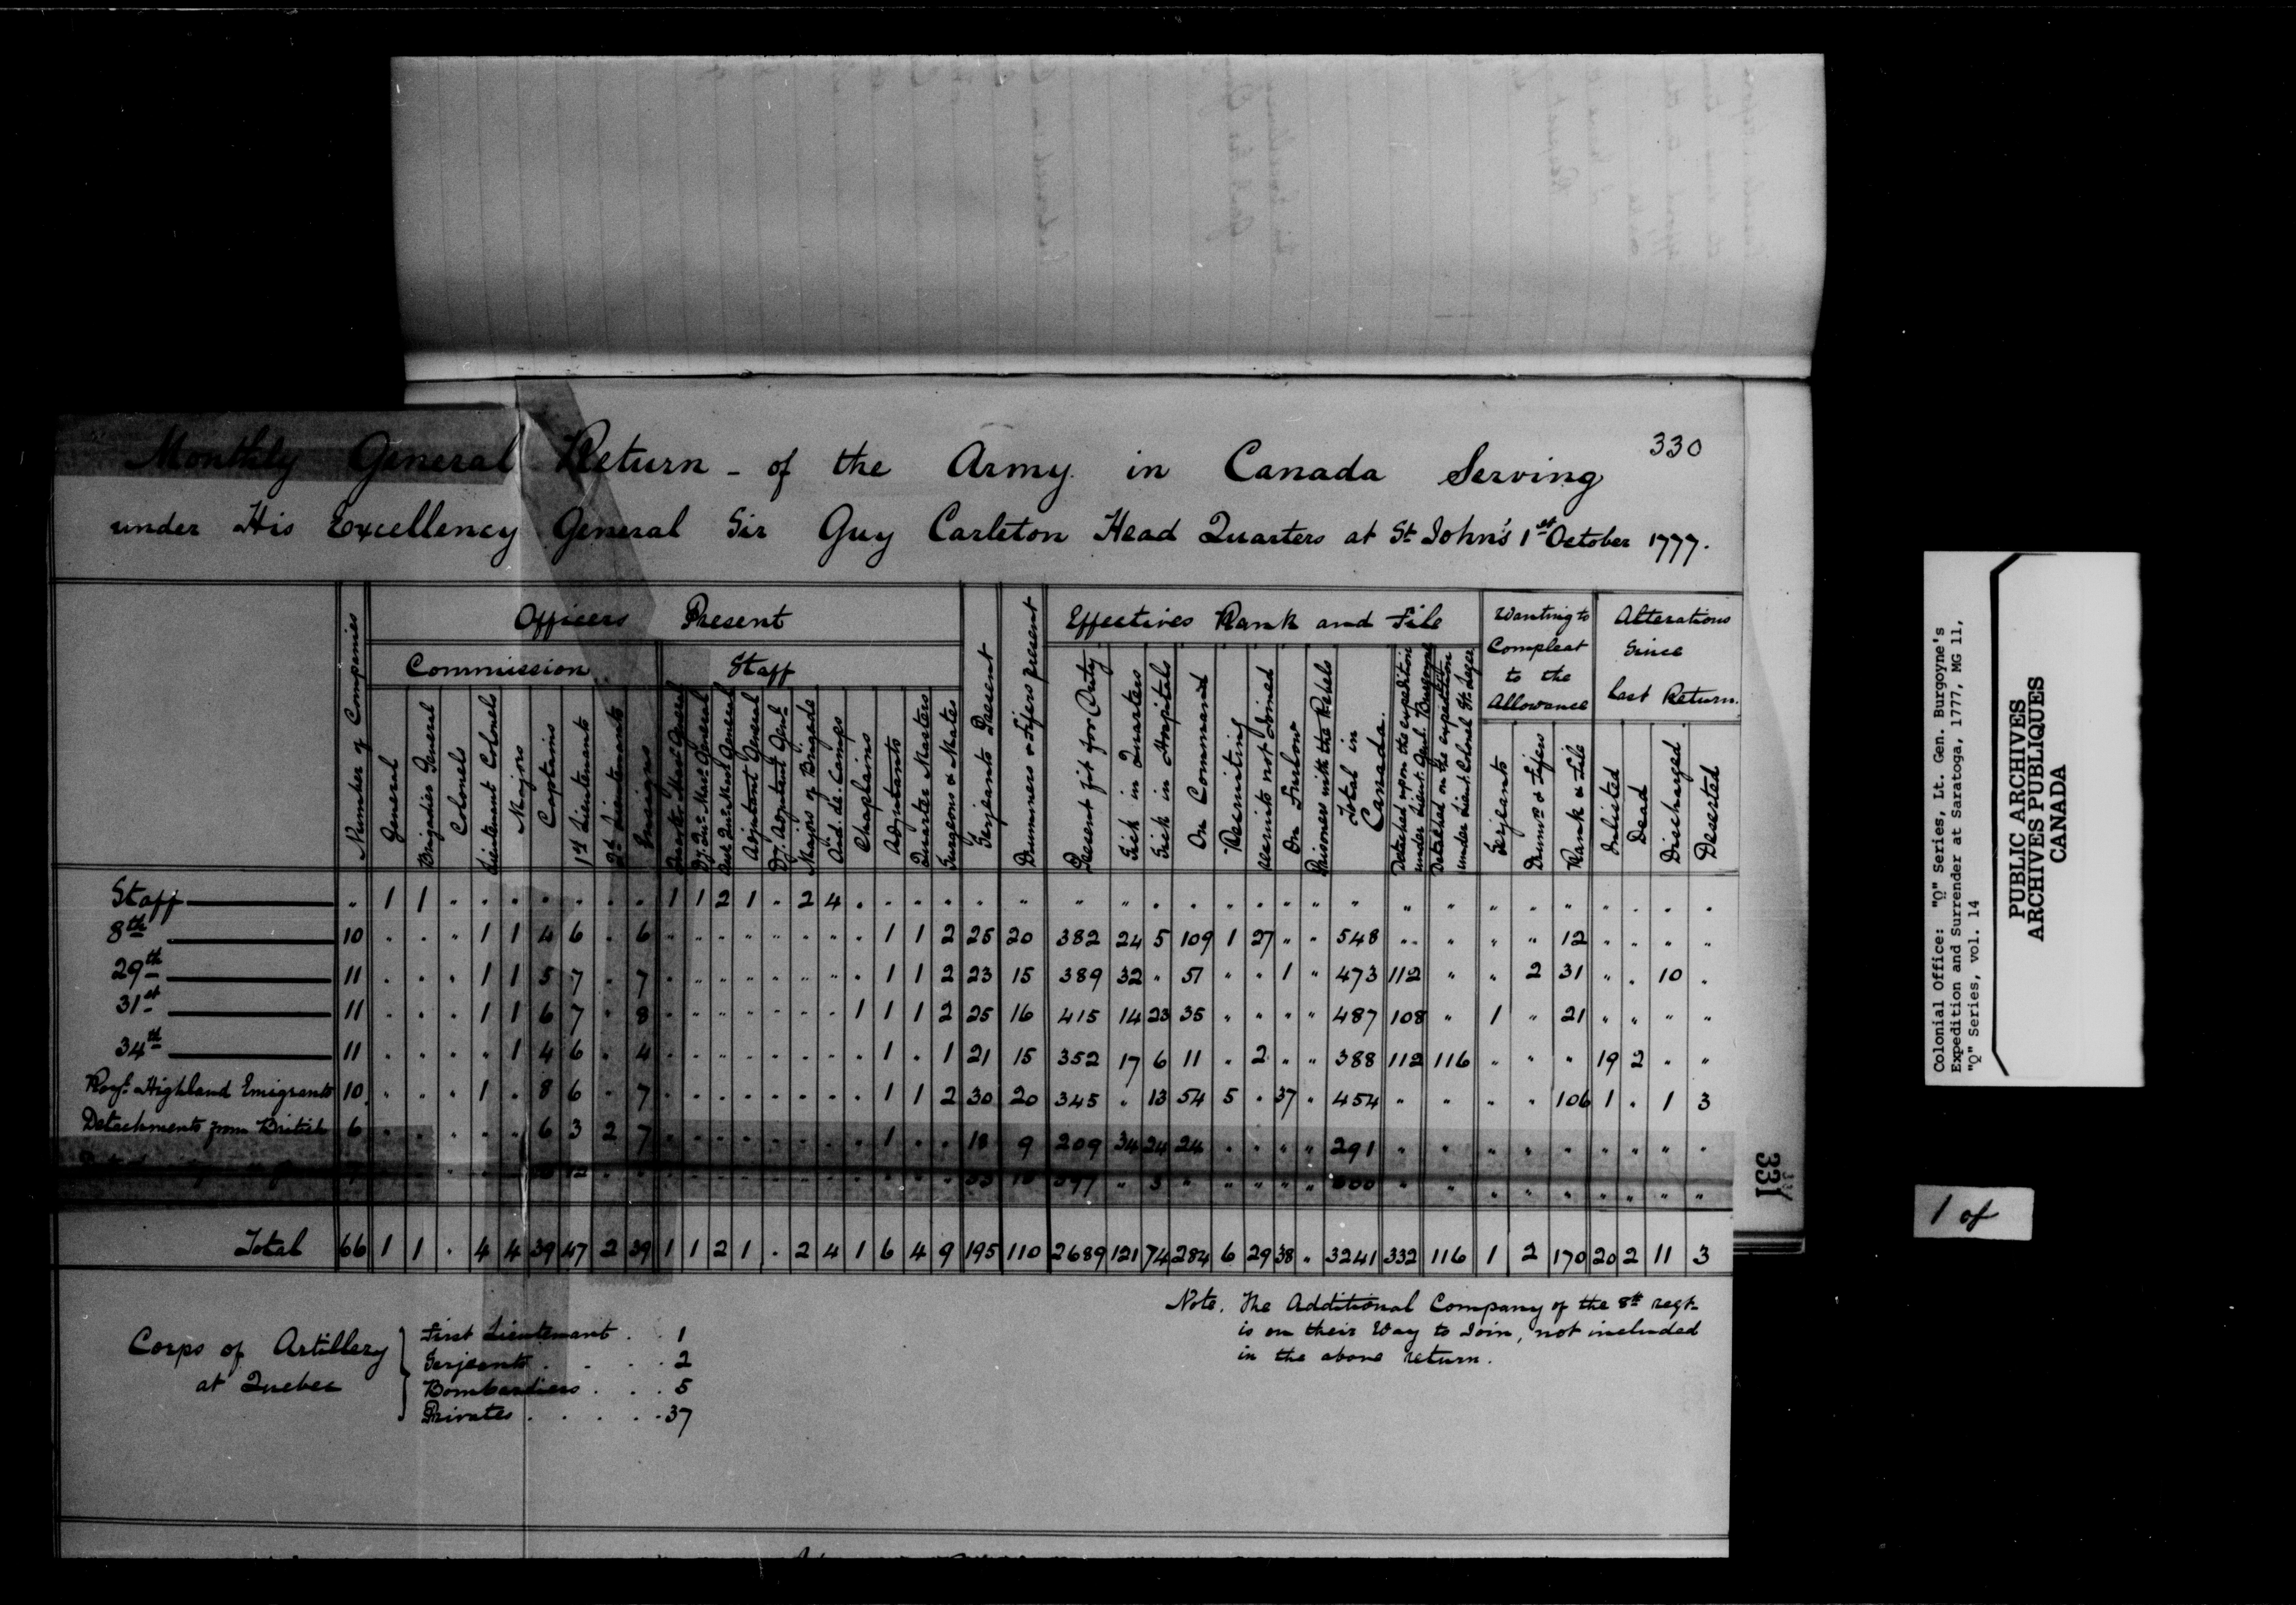 330
Monthly General Return - of the Army in Canada Serving
under His Excellency General Sir Guy Carleton Head Quarters at St. John's 1st October 1777.
Number of Companies
Officers Present
Commission
General
Brigadier General
Colonels
Lieutenant Colonels
Majors
Captains
1st Lieutenants
2d Lieutenants
Ensigns
Staff
Quarter Masr. General
Dy. Qur. Masr. General
Asst. Qur. Masr. General
Adjutant General
Dy. Adjutant Genl.
Majors of Brigade
Aid. de. Camps
Chaplains
Adjutants
Quarter Masters
Surgeons & Mates
Serjeants Present
Drummers & Fifers present
Effectives Rank and File
Present fit for Duty
Sick in Quarters
Sick in Hospitals
On Command
Recruiting
Recruits not Joined
On Furlow
Prisoners with the Rebels
Total in Canada.
Detached upon the expedition under Lieut. Genl. Burgoyne
Detached on the expedition under Lieut. Colonel St. Leger
Wanting to Compleat to the Allowance
Serjeants
Drumrs. & Fifers
Rank & File
Alterations Since Last Return.
Inlisted
Dead
Discharged
Deserted
Staff " 1 1 " " " " " " " 1 1 2 1 " 2 4 " " " " " " " " " " " " " " " " " " " " " " " "
8th 10 " " " 1 1 4 6 " 6 " " " " " " " " 1 1 2 25 20 382 24 5 109 1 27 " " 548 " " " " 12 " " " "
29th 11 " " " 1 1 5 7 " 7 " " " " " " " " 1 1 2 23 15 389 32 " 51 " " 1 " 473 112 " " 2 31 " " 10 "
31st 11 " " " 1 1 6 7 " 8 " " " " " " " 1 1 1 2 25 16 415 14 23 35 " " " " 487 108 " 1 " 21 " " " "
34th 11 " " " " 1 4 6 " 4 " " " " " " " " 1 " 1 21 15 352 17 6 11 " 2 " " 388 112 116 " " " 19 2 " "
Royl. Highland Emigrants 10 " " " 1 " 8 6 " 7 " " " " " " " " 1 1 2 30 20 345 " 13 54 5 " 37 " 454 " " " " 106 1 " 1 3
Detachments from British 6 " " " " " 6 3 2 7 " " " " " " " " 1 " " 18 9 209 34 24 24 " " " " 291 " " " " " " " " "
Total 66 1 1 " 4 4 39 47 2 39 1 1 2 1 " 2 4 1 6 4 9 195 110 2689 121 74 284 6 29 38 " 3241 332 116 1 2 170 20 2 11 3
Note. The Additional Company of the 8th regt.
is on their Way to Join, not included
in the above return.
Corps of Artillery
at Quebec
First Lieutenant . . 1
Serjeants . . . . 2
Bombardiers . . . 5
Privates . . . . . 37
331
Colonial Office: "Q" Series, Lt. Gen. Burgoyne's
Expedition and Surrender at Saratoga, 1777, MG 11,
"Q" Series, vol. 14
PUBLIC ARCHIVES
ARCHIVES PUBLIQUES
CANADA
1 of